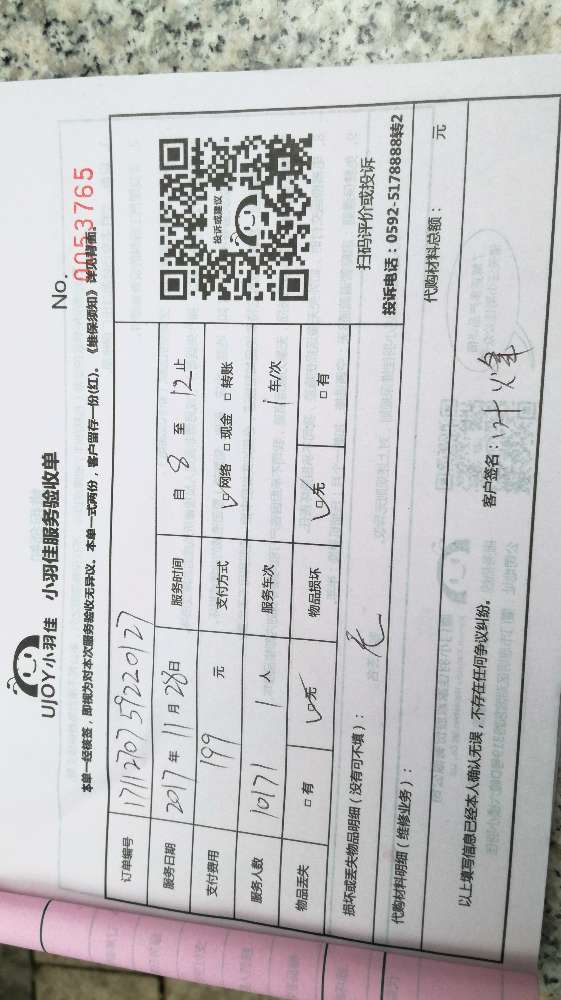 UJOY小羽佳 小羽佳服务验收单
No.
0053765
本单一经核签，即视为对本次服务验收无异议。本单一式两份，客户留存一份(红)。《维保须知》详见背面。
订单编号 1711270759220127
服务日期 2017 年 11 月 28 日 服务时间 自 8 至 12 止
支付费用 199 元 支付方式 ☑网络 □现金 □转账
服务人数 10171 1 人 服务车次 1 车/次
物品丢失 □有 ☑无 物品损坏 ☑无 □有
投诉或建议
扫码评价或投诉
投诉电话：0592-5178888转2
损坏或丢失物品明细（没有可不填）： 无
代购材料明细（维修业务）：
代购材料总额： 元
以上填写信息已经本人确认无误，不存在任何争议纠纷。
客户签名：叶烽